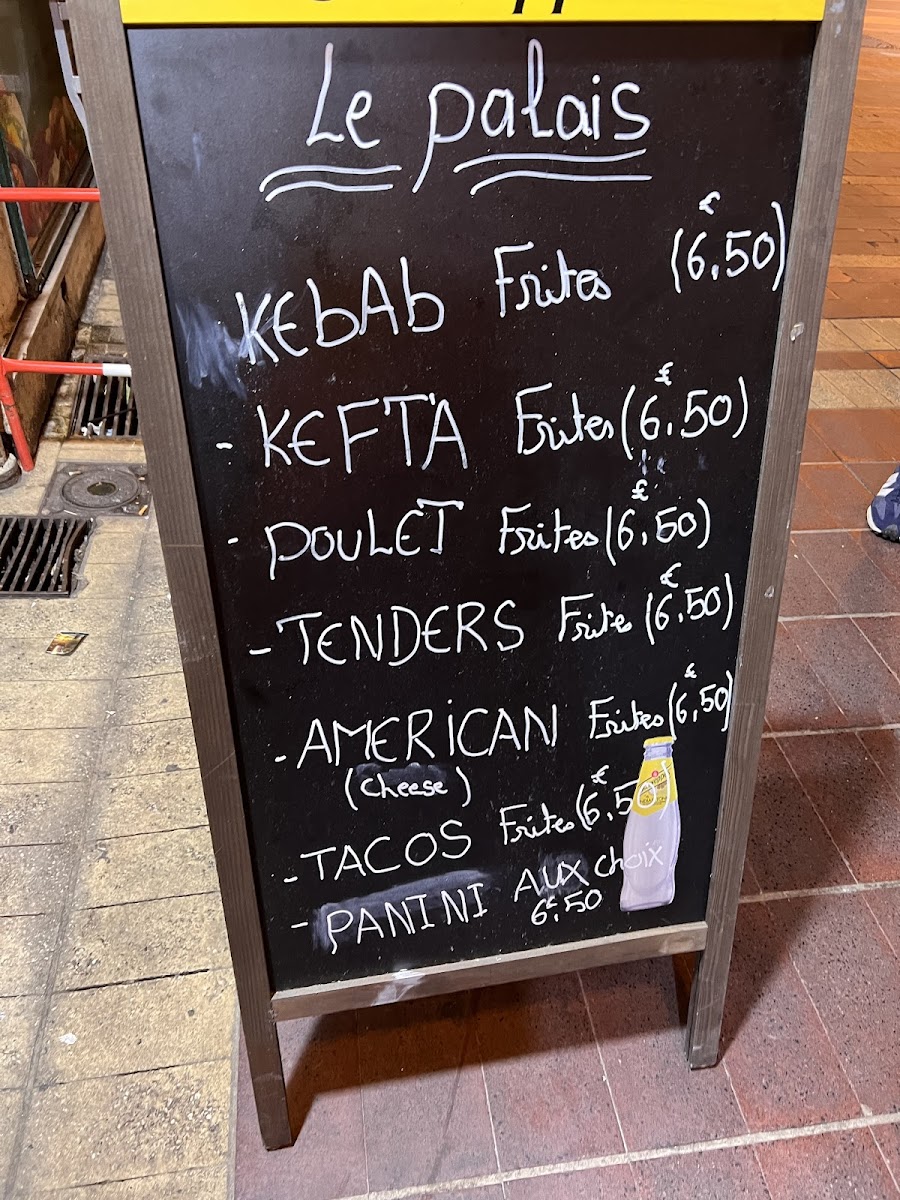 Le palais
KEbAb Frites (6,50) €
- KEFTA Frites (6,50) €
- POULET Frites (6,50) €
- TENDERS Frites (6,50) €
- AMERiCAN Frites (6,50) €
(Cheese)
- TACOS Frites (6,50) €
- PANINI AUX Choix
6€50